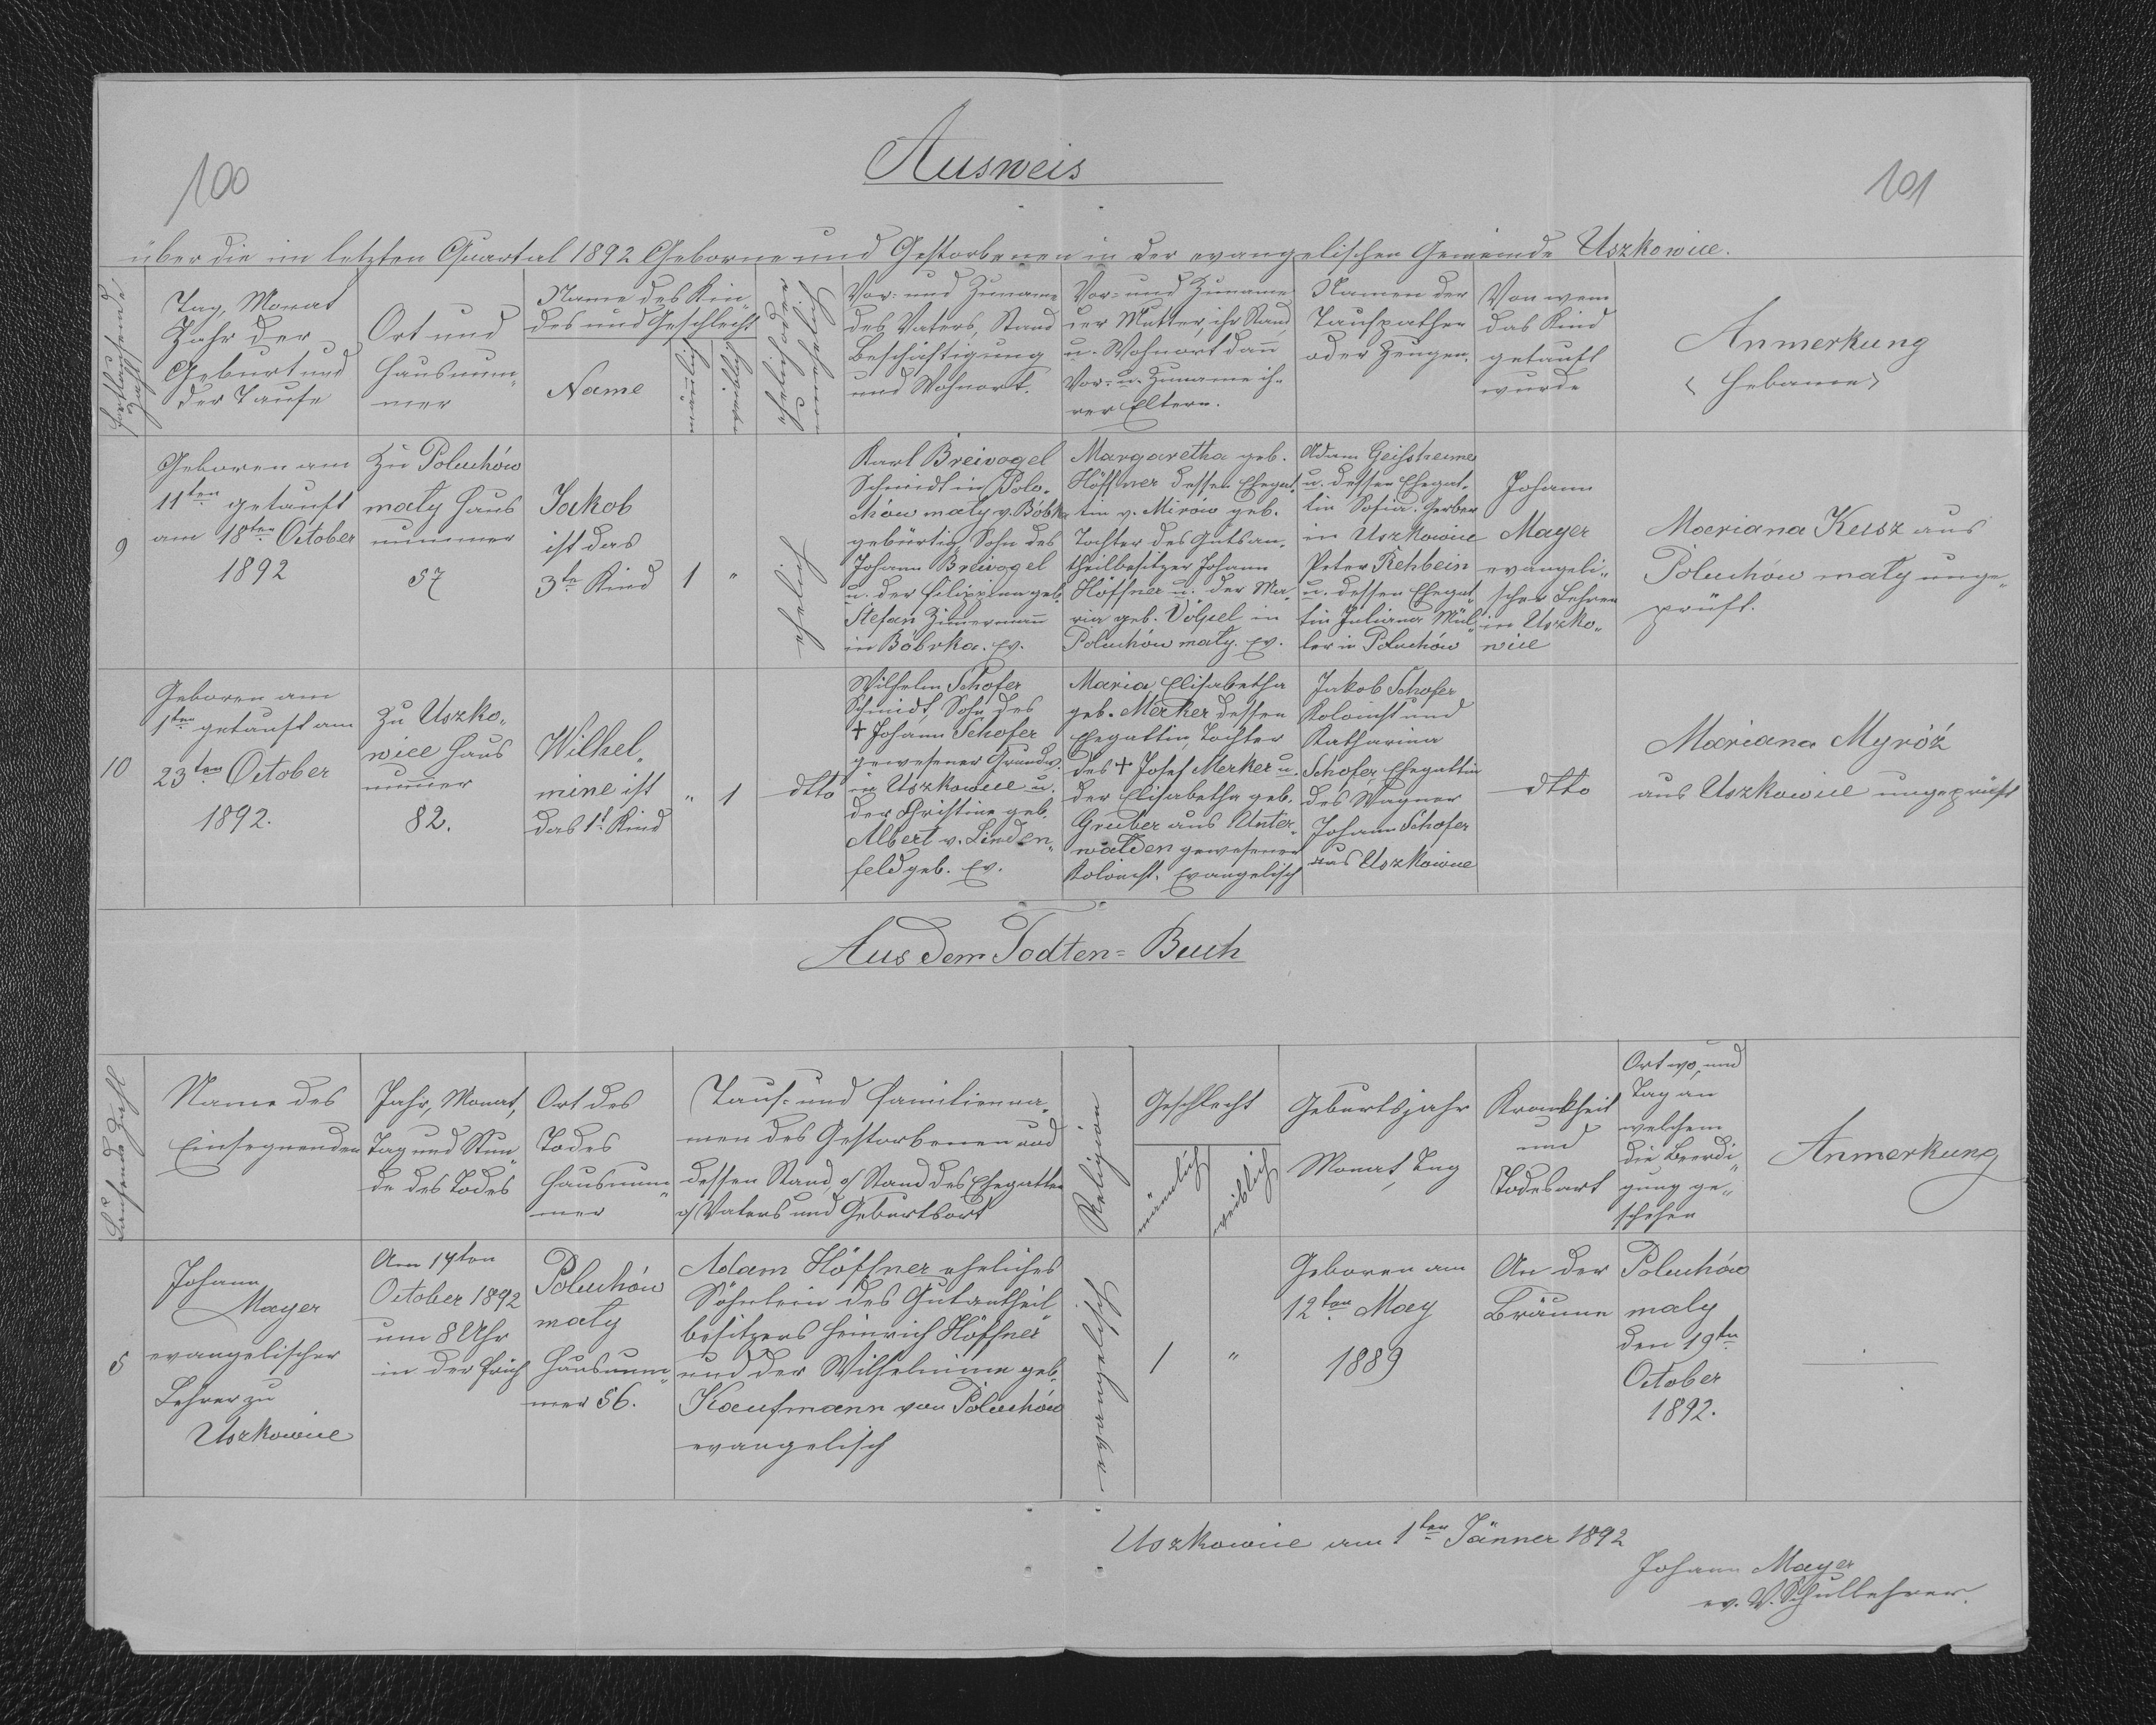 100
Ausweis
101
über die im letzten Quartal 1892 Geborne und Gestorbenen in der evangelischen Gemeinde Uszkowice.
Fortlaufende
Zahl
Tag, Monat
Jahr der
Geburt und
der Taufe
Ort und
Hausnum„
mer
Name des Kin„
des und Geschlecht
Name
männlich
weiblich
ehelich oder
unehelich
Vor- und Zuname
des Vaters, Stand
Beschäftigung
und Wohnort.
Vor- und Zuname
der Mutter, ihr Stand
u. Wohnort dann
Vor- u. Zuname ih-
rer Eltern.
Namen der
Taufpathen
oder Zeugen.
Von wem
das Kind
getauft
wurde
Anmerkung
< Hebame >
9
Geboren am
11ten getauft
am 18ten October
1892
Zu Poluchów
mały Haus
nummer
57
Jakob
ist das
3te Kind
1
"
ehelich
Karl Breivogel
Schmidt in Polu-
chów mały v. Bóbrka
gebürtig Sohn des
Johann Breivogel
u. der Filippina geb.
Stefan Zimermann
in Bóbrka. Ev.
Margaretha geb.
Höffner dessen Ehegat-
tin v. Mirów geb.
Tochter des Gutsan-
theilbesitzer Johann
Höffner u. der Ma-
ria geb. Völpel in
Poluchów mały. Ev.
Adam Geissheimer
u. dessen Ehegat-
tin Sofia. Gerber
in Uszkowice
Peter Rehbein
u. dessen Ehegat„
tin Juliana Mül„
ler in Poluchów
Johann
Mayer
evangeli„
scher Lehrer
in Uszko„
wice
Mariana Kusz aus
Poluchów mały unge„
prüft.
10
Geboren am
1ten getauft am
23ten October
1892.
Zu Uszko„
wice Haus
nummer
82.
Wilhel„
mine ist
das 1t. Kind
"
1
dtto
Wilhelm Schofer
Schmidt, Sohn des
† Johann Schofer
gewesener Grundw.
in Uszkowice u.
der Christine geb.
Albert v. Linden„
feld geb. Ev.
Maria Elisabetha
geb. Merker dessen
Ehegattin, Tochter
des † Josef Merker u.
der Elisabetha geb.
Gruber aus Unter„
walden gewesener
Kolonist. Evangelisch
Jakob Schofer
Kolonist und
Katharina
Schofer, Ehegattin
des Wagner
Johann Schofer
aus Uszkowice
dtto
Mariana Myróź
aus Uszkowice ungeprüft
Aus dem Todten- Buch
Laufende Zahl
Name des
Einsegnenden
Jahr, Monat,
Tag und Stun„
de des Todes
Ort des
Todes
Hausnum„
mer
Tauf- und Familienna„
men des Gestorbenen und
dessen Stand, o/ Stand des Ehegatten
o/ Vaters und Geburtsort
Religion
Geschlecht
männlich
weiblich
Geburtsjahr
Monat, Tag
Krankheit
und
Todesart
Ort wo, und
Tag an
welchem
die Beerdi„
gung ge„
schehen
Anmerkung
5
Johann
Mayer
evangelischer
Lehrer zu
Uszkowice
Am 17ten
October 1892
um 8 Uhr
in der Früh
Poluchów
mały
Hausnum„
mer 56.
Adam Höffner eheliches
Söhnlein des Gutantheil
besitzers Heinrich Höffner
und der Wilhelmine geb.
Kaufmann von Poluchów
evangelisch
evangelisch
1
"
Geboren am
12ten May
1889
An der
Bräune
Poluchów
mały
den 19ten
October
1892.
Uszkowice am 1ten Jänner 1892
Johann Mayer
ev. V. Schullehrer.